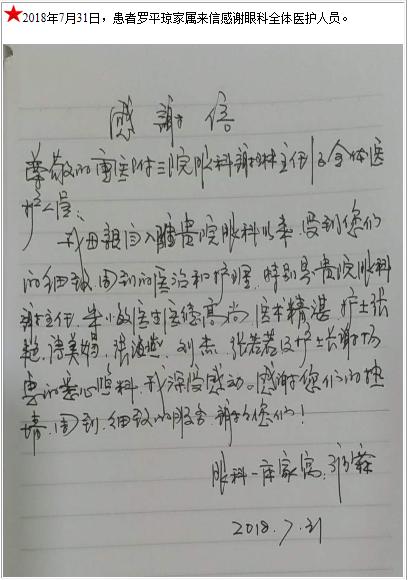 ★2018年7月31日，患者罗平琼家属来信感谢眼科全体医护人员。
感谢信
尊敬的重医附三院眼科谢琳主任及全体医
护人员：
我母亲自入住贵院眼科以来，受到您们
的细致、周到的医治和护理，特别是贵院眼科
谢主任、朱小敏医生医德高尚、医术精湛，护士张
艳、唐美娟、张 、刘杰、张 及护士长谢
的悉心照料，我深深感动。感谢您们的热
情、周到、细致的服务，谢谢您们！
眼科一床家属：
2018.7.31